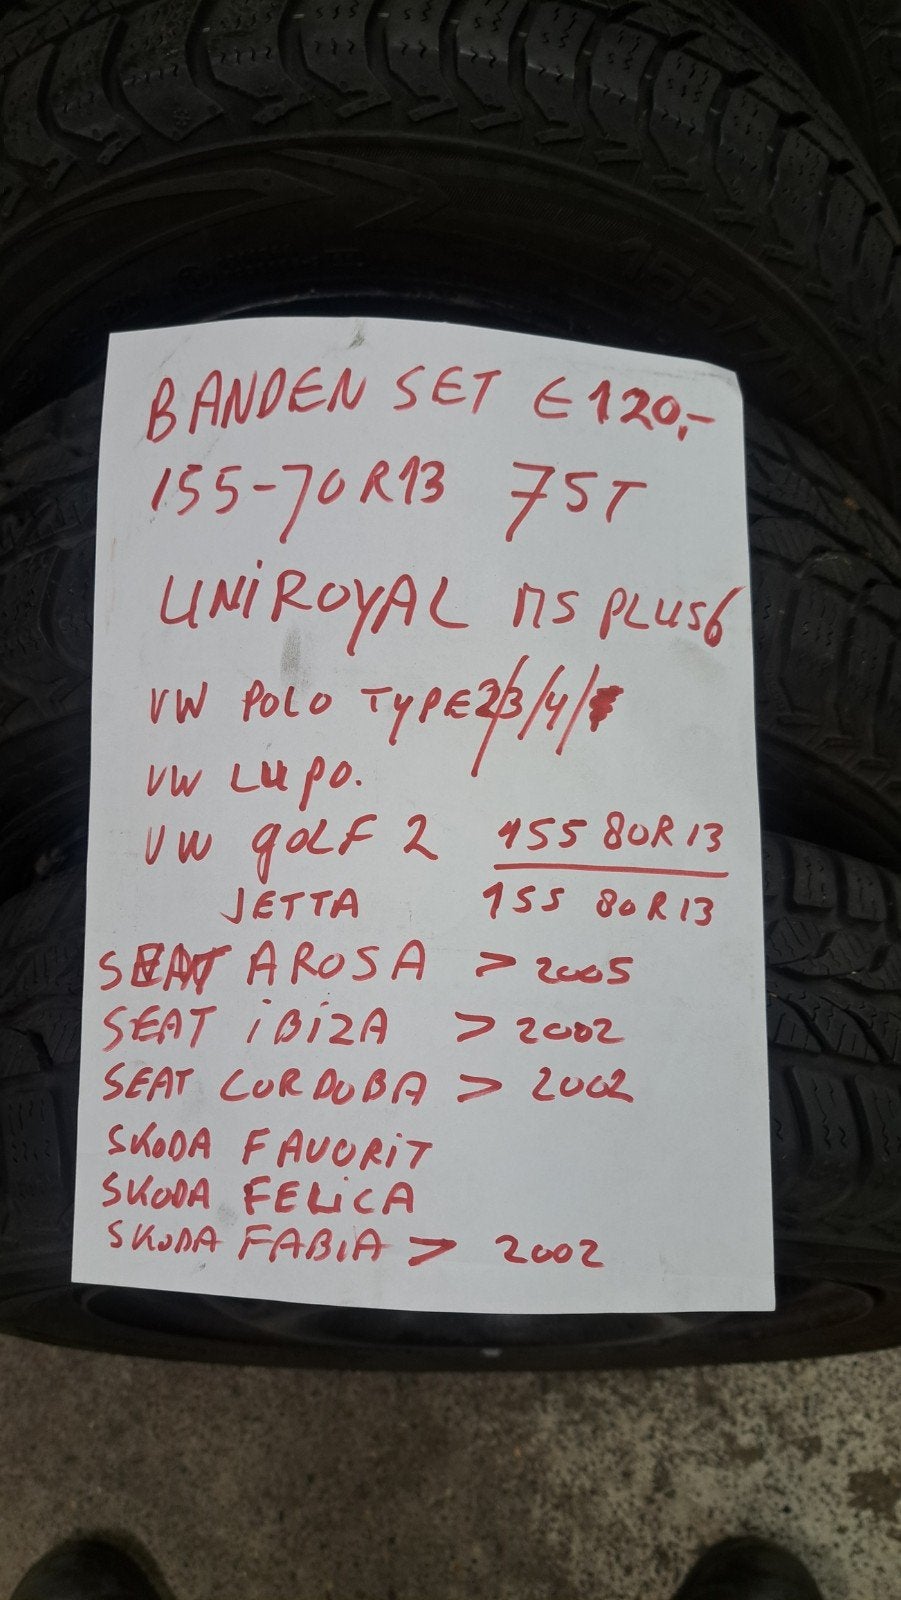 155/
BANDEN SET € 120,-
155-70R13 75T
UNIROYAL MS PLUS6
VW POLO TYPE 2/3/4/
VW LUPO.
VW GOLF 2 155 80R13
JETTA 155 80R13
SEAT AROSA > 2005
SEAT iBiZA > 2002
SEAT CORDOBA > 2002
SKODA FAVORiT
SKODA FELiCA
SKODA FABiA > 2002